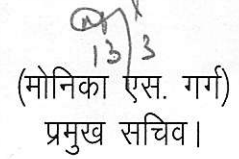 13/3
(मोनिका एस. गर्ग)
प्रमुख सचिव।